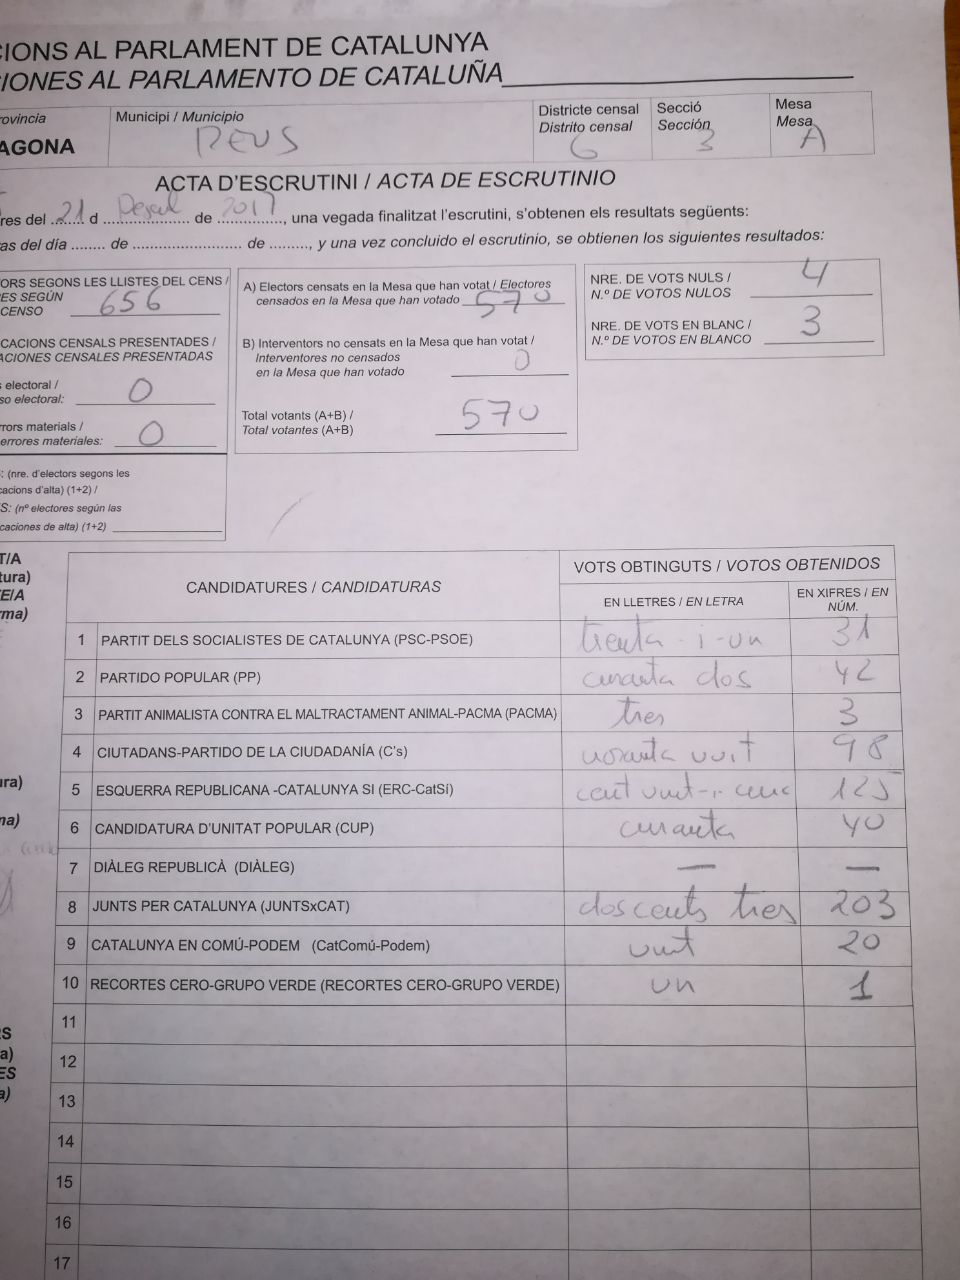 CIONS AL PARLAMENT DE CATALUNYA
IONES AL PARLAMENTO DE CATALUÑA
rovincia
AGONA
Municipi / Municipio
REUS
Districte censal
Distrito censal
6
Secció
Sección
3
Mesa
Mesa
A
ACTA D'ESCRUTINI / ACTA DE ESCRUTINIO
res del 21 d Desembre de 2017, una vegada finalitzat l'escrutini, s'obtenen els resultats següents:
as del día ........ de ........................... de ........., y una vez concluido el escrutinio, se obtienen los siguientes resultados:
ORS SEGONS LES LLISTES DEL CENS /
ES SEGÚN
CENSO 656
CACIONS CENSALS PRESENTADES /
ACIONES CENSALES PRESENTADAS
s electoral /
so electoral: 0
rrors materials /
errores materiales: 0
: (nre. d'electors segons les
cacions d'alta) (1+2) /
S: (nº electores según las
caciones de alta) (1+2)
A) Electors censats en la Mesa que han votat / Electores
censados en la Mesa que han votado 570
B) Interventors no censats en la Mesa que han votat /
Interventores no censados
en la Mesa que han votado 0
Total votants (A+B) /
Total votantes (A+B) 570
NRE. DE VOTS NULS /
N.º DE VOTOS NULOS 4
NRE. DE VOTS EN BLANC /
N.º DE VOTOS EN BLANCO 3
T/A
tura)
E/A
rma)
ura)
ma)
RS
a)
ES
a)
CANDIDATURES / CANDIDATURAS
VOTS OBTINGUTS / VOTOS OBTENIDOS
EN LLETRES / EN LETRA
EN XIFRES / EN
NÚM.
1 PARTIT DELS SOCIALISTES DE CATALUNYA (PSC-PSOE) trenta-i-un 31
2 PARTIDO POPULAR (PP) curanta dos 42
3 PARTIT ANIMALISTA CONTRA EL MALTRACTAMENT ANIMAL-PACMA (PACMA) tres 3
4 CIUTADANS-PARTIDO DE LA CIUDADANÍA (C's) noranta vuit 98
5 ESQUERRA REPUBLICANA -CATALUNYA SI (ERC-CatSí) cent vint-i cinc 125
6 CANDIDATURA D'UNITAT POPULAR (CUP) curanta 40
7 DIÀLEG REPUBLICÀ (DIÀLEG) — —
8 JUNTS PER CATALUNYA (JUNTSxCAT) dos cents tres 203
9 CATALUNYA EN COMÚ-PODEM (CatComú-Podem) vint 20
10 RECORTES CERO-GRUPO VERDE (RECORTES CERO-GRUPO VERDE) un 1
11
12
13
14
15
16
17